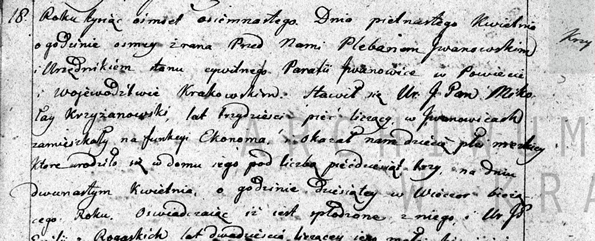 18. Roku tysiąc ośmset ośmnastego. Dnia piętnastego Kwietnia
o godzinie osmey z rana Przed Nami Plebanem Jwanowskim
i Urzędnikiem stanu cywilnego Parafii Jwanowice w Powiecie
i Woiewództwie Krakowskim. Stawił się Ur. J. Pan Miko
łay Krzyżanowski, lat trzydzieści pięć liczący w Jwanowicach
zamieszkały na funkcyi Ekonoma, i okazał nam dziecię płci męzkiey
które urodziło się w domu iego pod liczbą pięćdziesiąt trzy, na dniu
dwunastym Kwietnia, o godzinie dziesiątey w Wieczor bieżą
cego Roku. Oswiadczaiąc iż iest spłodzone z niego i Ur. JP.
z Rogaskich lat dwadzieścia liczącey iego
Krzy
ARCHIWUM
KRA